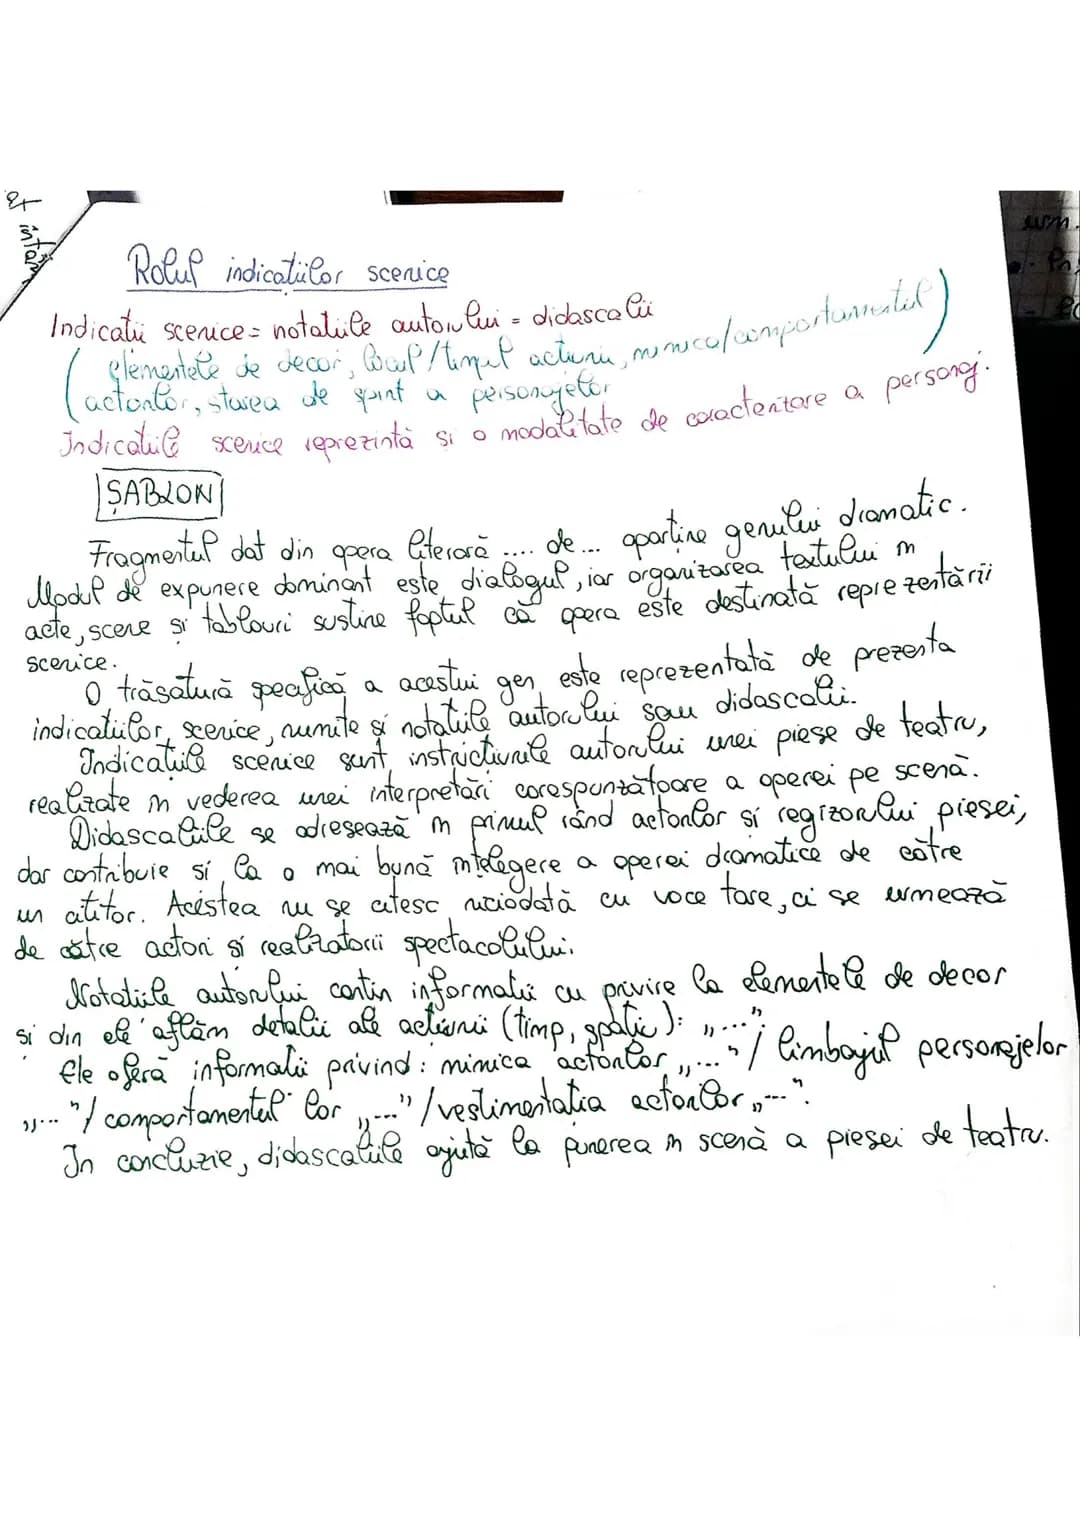 Rolul indicațiilor scenice
Indicații scenice = notațiile autorului = didascalii
( elementele de decor, locul/timpul acțiunii, mimica/comportamentul )
actorilor, starea de spirit a personajelor
Indicațiile scenice reprezintă și o modalitate de caracterizare a personaj.
ȘABLON
Fragmentul dat din opera literară .... de ... aparține genului dramatic.
Modul de expunere dominant este dialogul, iar organizarea textului în
acte, scene și tablouri susține faptul că opera este destinată reprezentării
scenice.
O trăsătură specifică a acestui gen este reprezentată de prezența
indicațiilor scenice, numite și notațiile autorului sau didascalii.
Indicațiile scenice sunt instrucțiunile autorului unei piese de teatru,
realizate în vederea unei interpretări corespunzătoare a operei pe scenă.
Didascaliile se adresează în primul rând actorilor și regizorului piesei,
dar contribuie și la o mai bună înțelegere a operei dramatice de către
un cititor. Acestea nu se citesc niciodată cu voce tare, ci se urmează
de către actori și realizatorii spectacolului.
Notațiile autorului conțin informații cu privire la elementele de decor
și din ele aflăm detalii ale acțiunii (timp, spațiu): „..."
Ele oferă informații privind: mimica actorilor „..." / limbajul personajelor
„..." / comportamentul lor „..." / vestimentația actorilor „...".
În concluzie, didascaliile ajută la punerea în scenă a piesei de teatru.